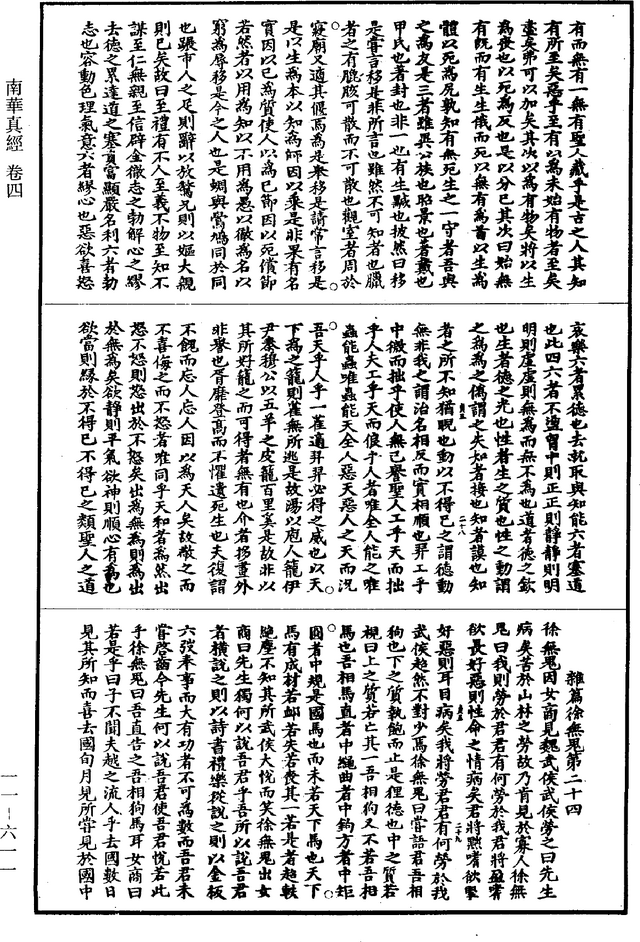 南華真經 卷四
一一-六一一
有而無有一無有聖人藏乎是古之人其知
有所至矣惡乎至有以為未始有物者至矣
盡矣弗可以加矣其次以為有物矣將以生
為喪也以死為反也是以分已其次曰始無
有既而有生生俄而死以無有為首以生為
體以死為尻孰知有無死生之一守者吾與
之為友是三者雖異公族也昭景也著戴也
甲氏也著封也非一也有生黬也披然曰移
是嘗言移是非所言也雖然不可知者也臘
者之有膍胲可散而不可散也觀室者周於
寢廟又適其偃焉為是舉移是請常言移是
是以生為本以知為師因以乘是非果有名
實因以己為質使人以為己節因以死償節
若然者以用為知以不用為愚以徹為名以
窮為辱移是今之人也是蜩與鷽鳩同於同
也蹍市人之足則辭以放驁兄則以嫗大親
則已矣故曰至禮有不人至義不物至知不
謀至仁無親至信辟金徹志之勃解心之繆
去德之累達道之塞貴富顯嚴名利六者勃
志也容動色理氣意六者繆心也惡欲喜怒
哀樂六者累德也去就取與知能六者塞道
也此四六者不盪胷中則正正則靜靜則明
明則虛虛則無為而無不為也道者德之欽
也生者德之光也性者生之質也性之動謂
之為為之偽謂之失知者接也知者謨也知
者之所不知猶睨也動以不得已之謂德動
二十八
無非我之謂治名相反而實相順也羿工乎
中微而拙乎使人無己譽聖人工乎天而拙
乎人夫工乎天而俍乎人者唯全人能之唯
蟲能蟲唯蟲能天全人惡天惡人之天而況
吾天乎人乎一雀適羿羿必得之威也以天
下為之籠則雀無所逃是故湯以庖人籠伊
尹秦穆公以五羊之皮籠百里奚是故非以
其所好籠之而可得者無有也介者拸畫外
非譽也胥靡登高而不懼遺死生也夫復謵
不餽而忘人忘人因以為天人矣故敬之而
不喜侮之而不怒者唯同乎天和者為然出
怒不怒則怒出於不怒矣出為無為則為出
於無為矣欲靜則平氣欲神則順心有為也
欲當則緣於不得已不得已之類聖人之道
雜篇徐無鬼第二十四
徐無鬼因女商見魏武侯武侯勞之曰先生
病矣苦於山林之勞故乃肯見於寡人徐無
鬼曰我則勞於君君有何勞於我君將盈嗜
欲長好惡則性命之情病矣君將黜嗜欲掔
二十九
好惡則耳目病矣我將勞君君有何勞於我
武侯超然不對少焉徐無鬼曰嘗語君吾相
狗也下之質執飽而止是狸德也中之質若
視日上之質若亡其一吾相狗又不若吾相
馬也吾相馬直者中繩曲者中鉤方者中矩
圓者中規是國馬也而未若天下馬也天下
馬有成材若卹若失若喪其一若是者超軼
絕塵不知其所武侯大悅而笑徐無鬼出女
商曰先生獨何以說吾君乎吾所以說吾君
者橫說之則以詩書禮樂從說之則以金板
六弢奉事而大有功者不可為數而吾君未
嘗啓齒今先生何以說吾君使吾君悅若此
乎徐無鬼曰吾直告之吾相狗馬耳女商曰
若是乎曰子不聞夫越之流人乎去國數日
見其所知而喜去國旬月見所嘗見於國中